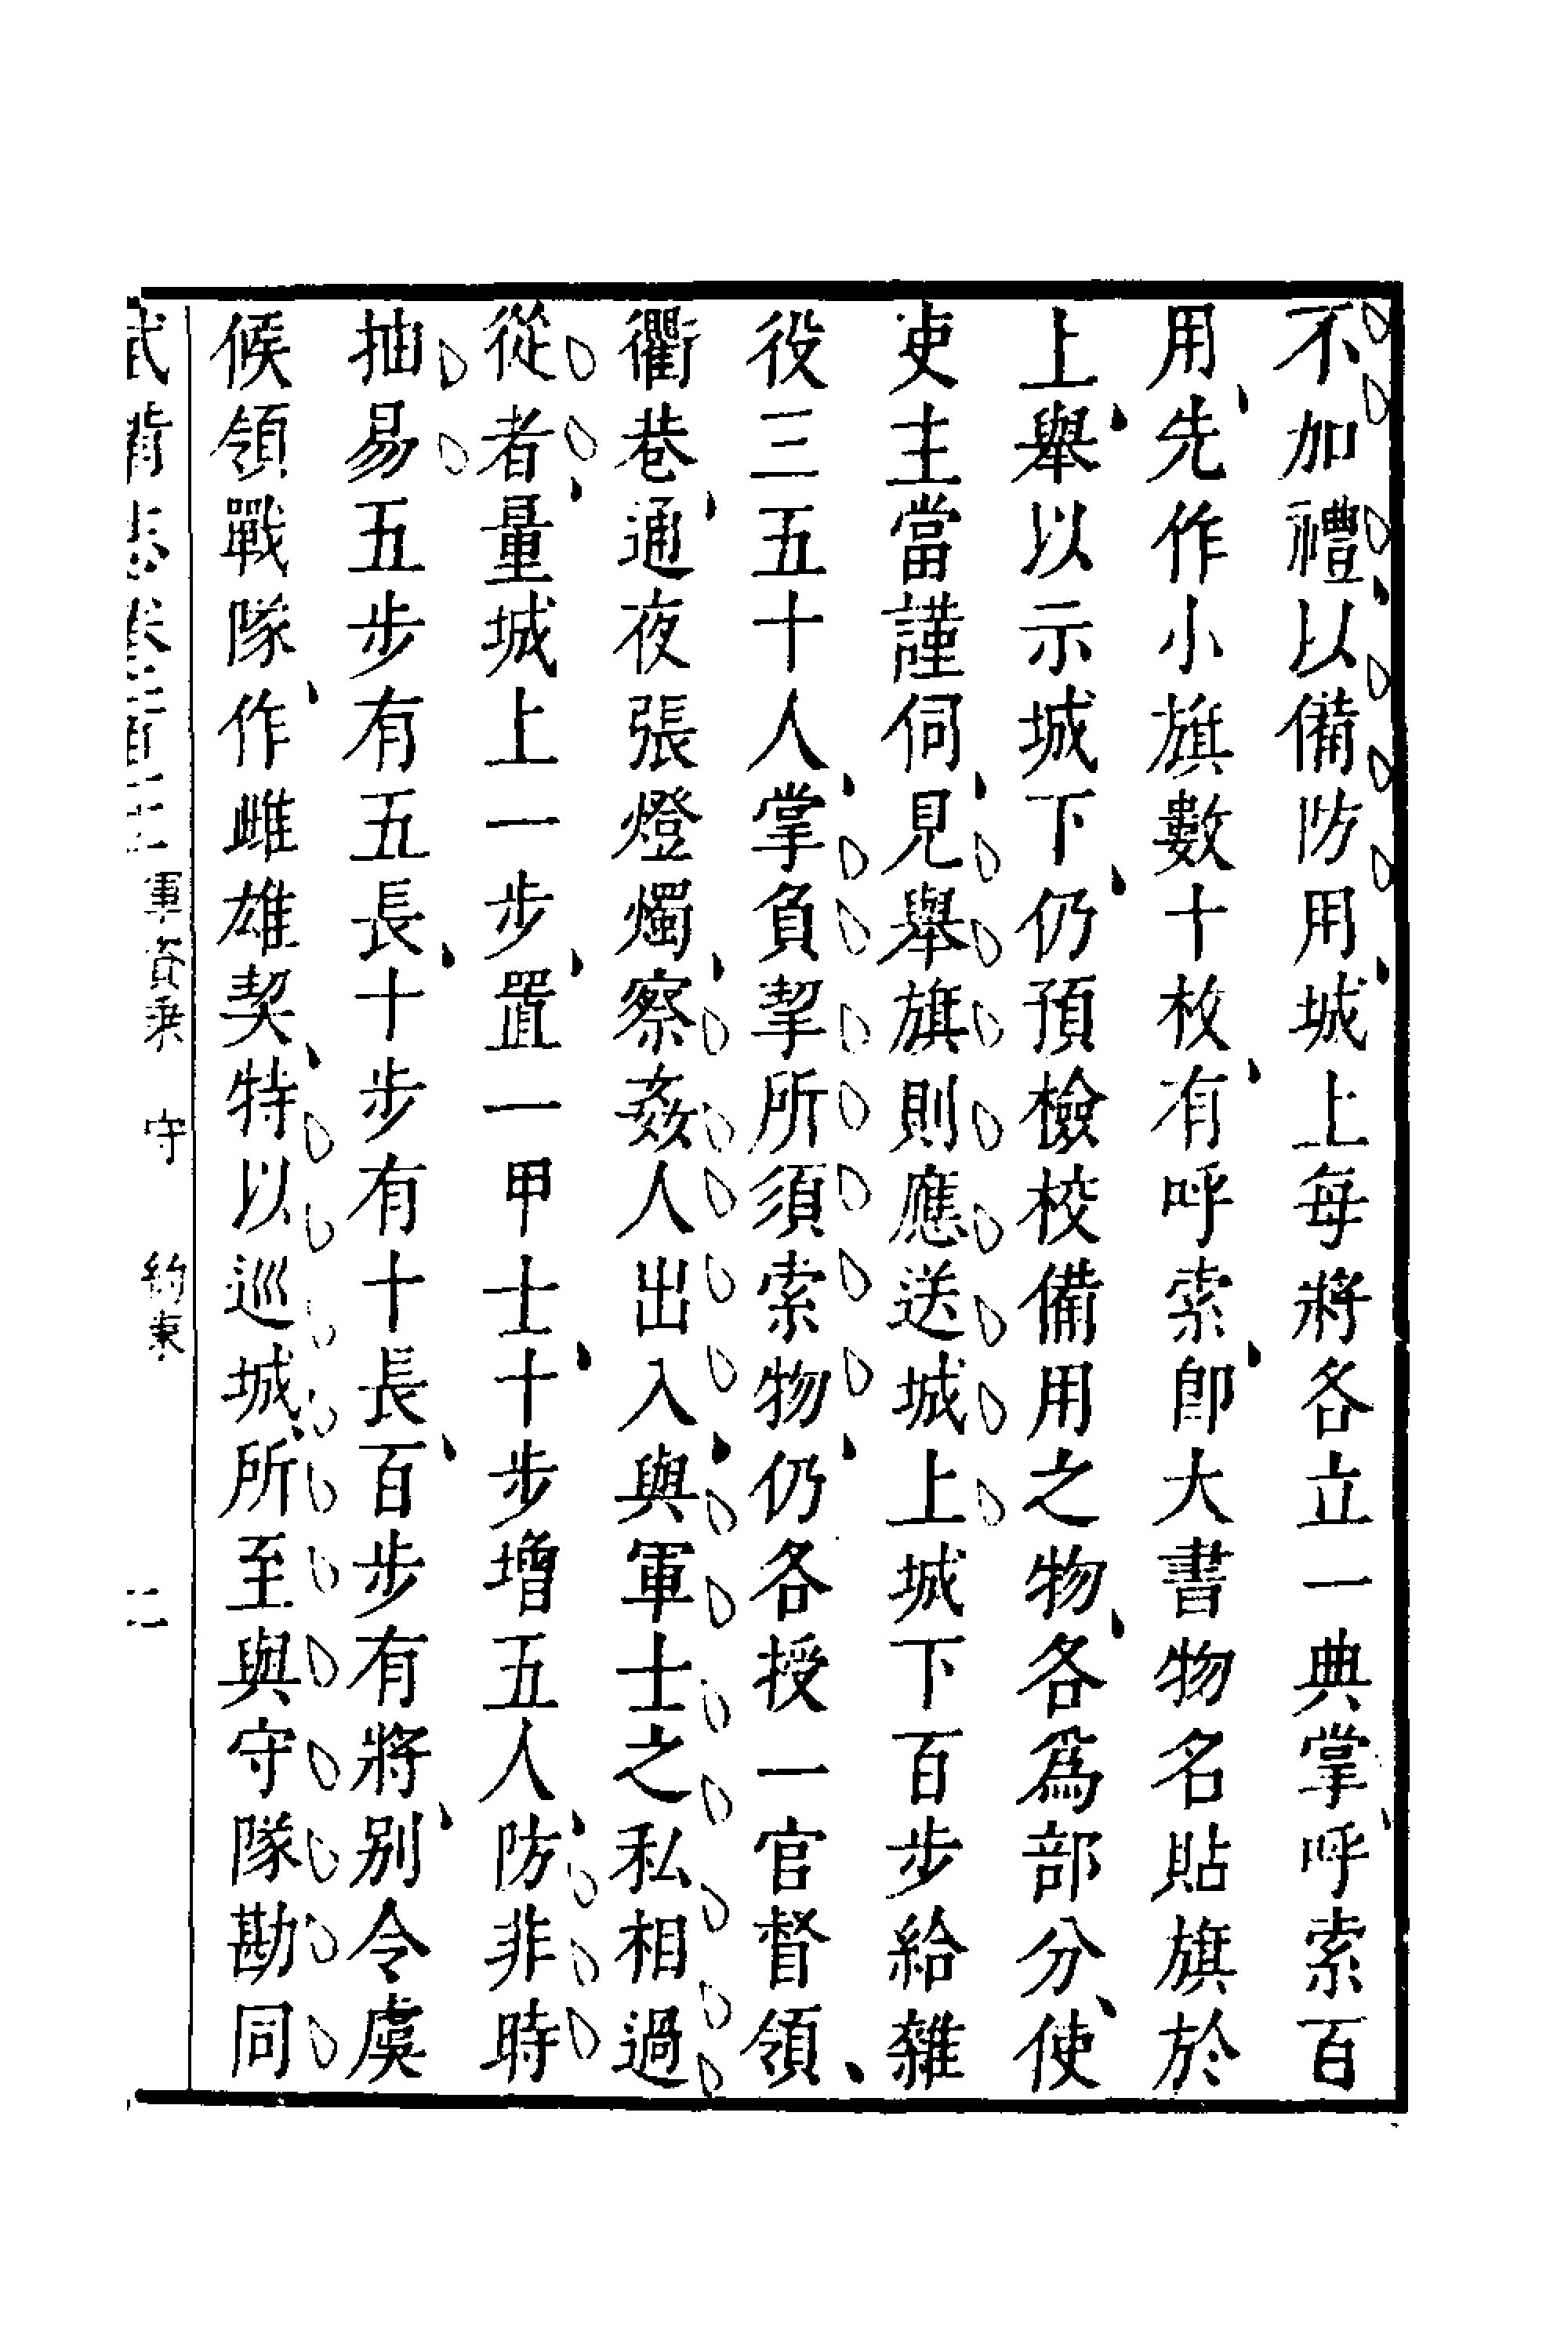 不加禮以備防用城上每將各立一典掌呼索百
用先作小旗數十枚有呼索卽大書物名貼旗於
上舉以示城下仍預檢校備用之物各爲部分使
吏主當謹伺見舉旗則應送城上城下百步給雜
役三五十人掌負挈所須索物仍各授一官督領
衢巷通夜張燈燭察姦人出入與軍士之私相過
從者量城上一步置一甲士十步增五人防非時
抽易五步有五長十步有十長百步有將别令虞
候領戰隊作雌雄契特以巡城所至與守隊勘同
武備志卷 軍資乘 守 約束 二